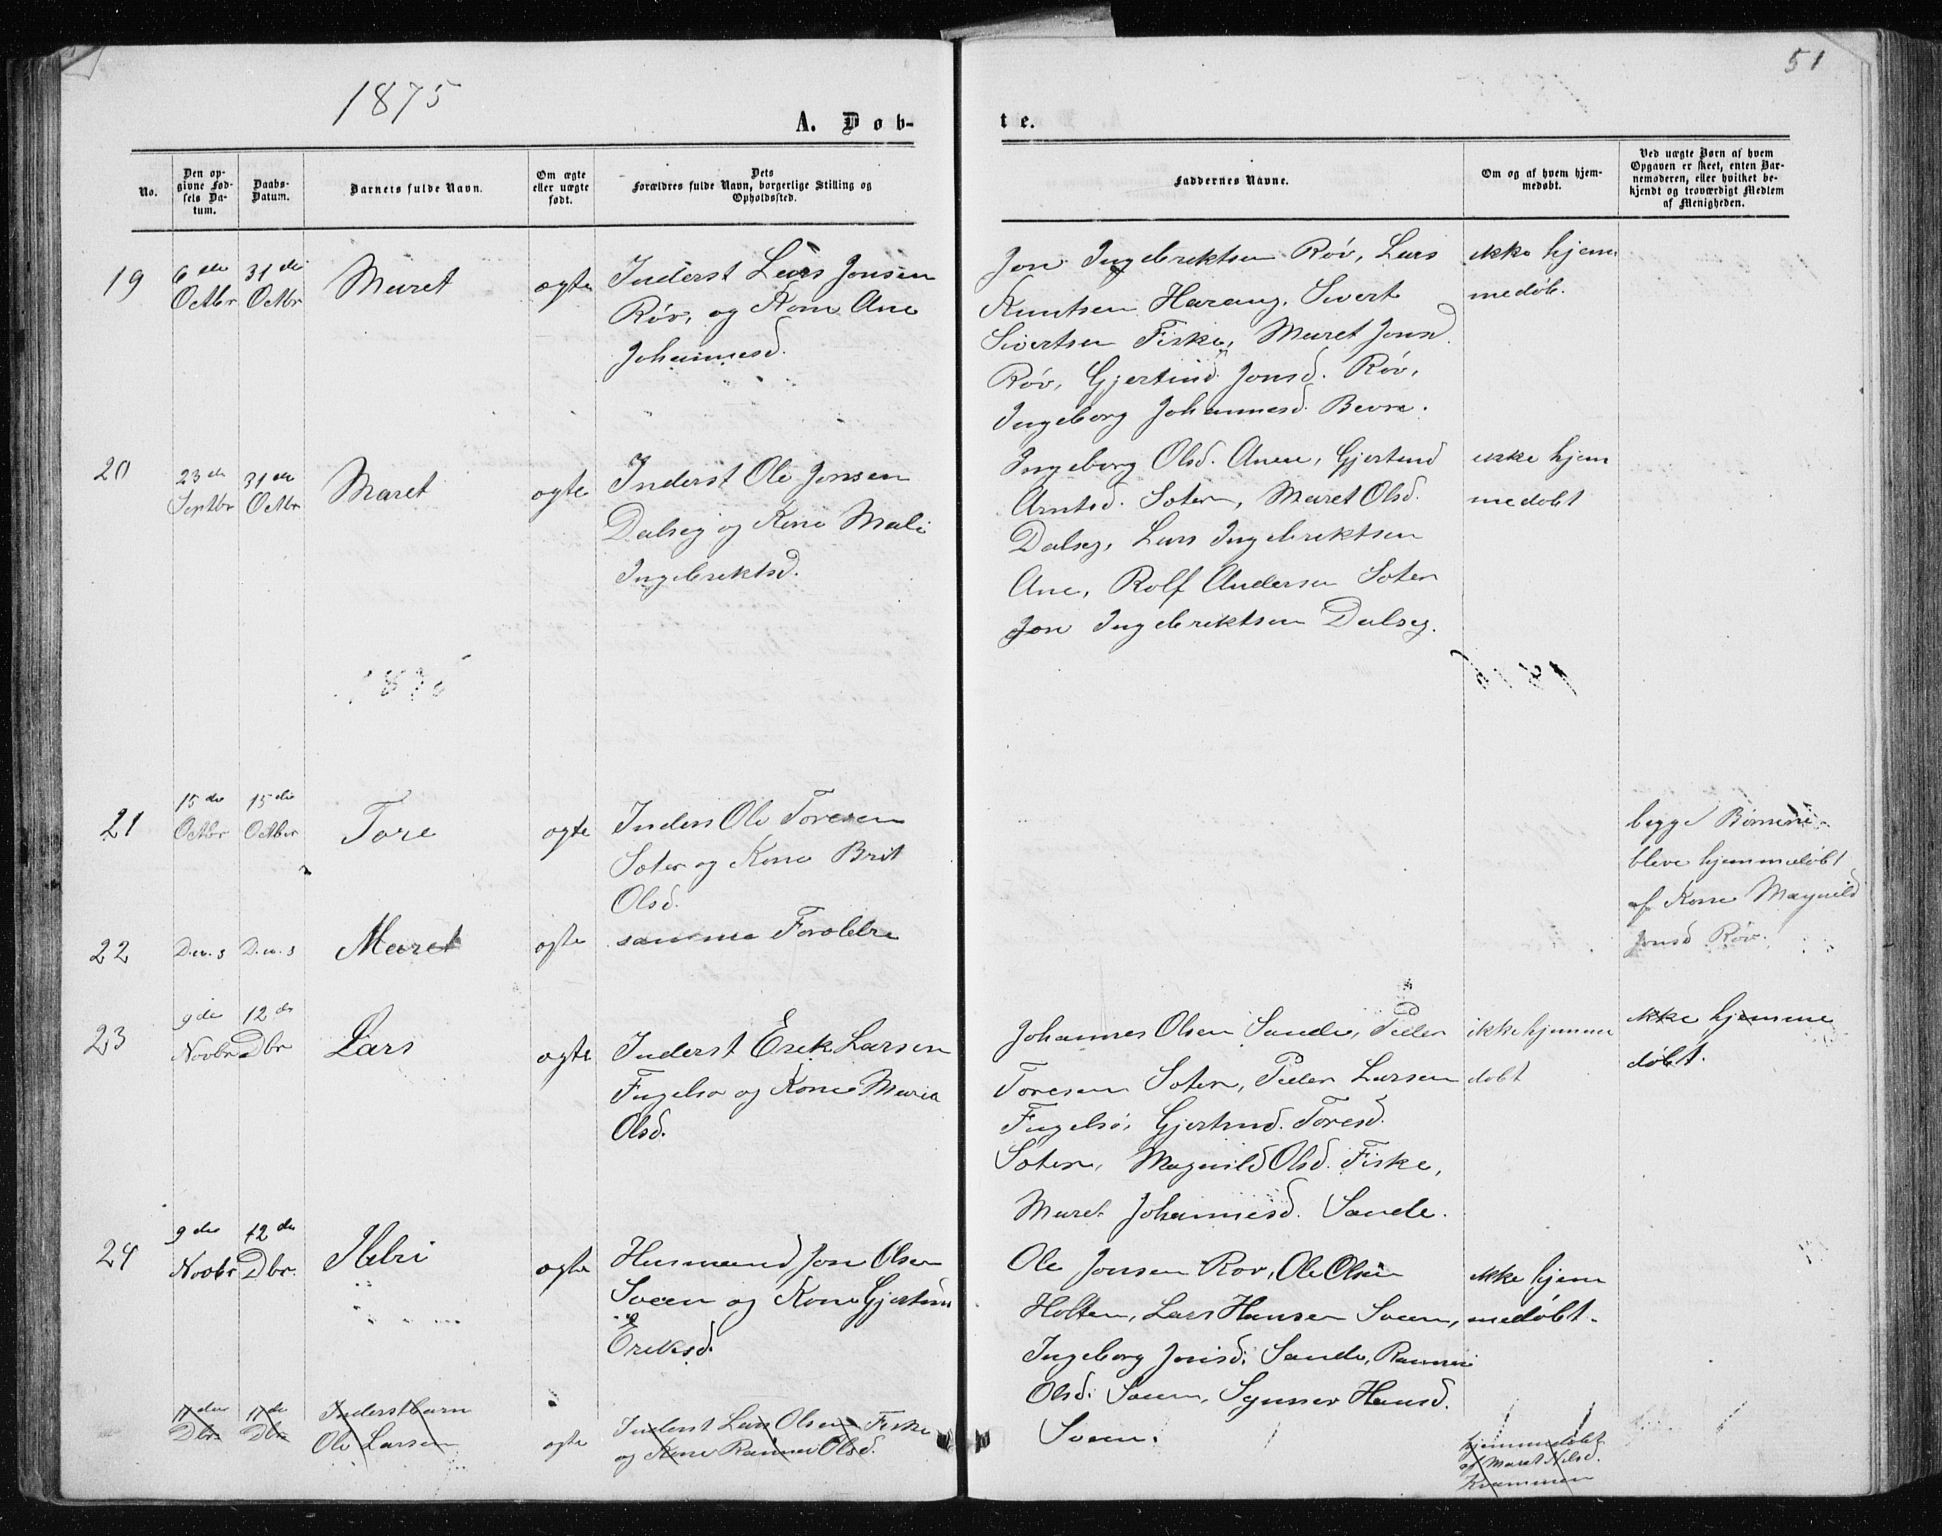 51
1875
A. Døb-
te.
No.
Den op-
givne Fød-
sels Da-
tum.
Daabs-
Datum.
Barnets fulde Navn.
Om ægte
eller uægte
født.
Dets
Forældres fulde Navn, borgerlige Stilling og
Opholdssted.
Faddernes Navne.
Om og af hvem hjem-
medøbt.
Ved uægte Børn af hvem
Opgaven er skeet, enten Bar-
nemoderen, eller hvilket be-
kjendt og troværdigt Medlem
af Menigheden.
19
6 de
Octbr
31 de
Octbr
Maret
ægte
Inderst Lars Jonsen
Røv, og Kone Ane
Johannesd.
Jon Ingebriktsen Røv, Lars
Knutsen Harang, Sivert
Sivertsen Fiske, Maret Jonsd.
Røv, Gjertrud Jonsd. Røv,
Ingeborg Johannesd. Bevre.
ikke hjem
medøb.
20
23 de
Septbr
31 de
Octbr
Maret
ægte
Inderst Ole Jonsen
Dalseg og Kone Mali
Ingebriktsd.
Ingeborg Olsd. Anen, Gjertrud
Arntsd. Soter, Maret Olsd.
Dalseg, Lars Ingebriktsen
Ane, Rolf Andersen Soter
Jon Ingebriktsen Dalseg.
ikke hjem
medøbt
21
15 de
Octbr
15 de
Octber
Tore
ægte
Inders Ole Toresen
Soter og Kone Brit
Olsd.
begge Børnene
bleve hjemmedøbt
af Kone Magnild
Jonsd Røv.
22
D.u.s
D.u.s
Maret
ægte
samme Forældre
23
9 de
Novbr
12 de
Dbr
Lars
ægte
Inderst Erik Larsen
Fugelsø og Kone Maria
Olsd.
Johannes Olsen Sande, Peder
Toresen Soter, Peder Larsen
Fugelsø, Gjertrud Toresd.
Soter, Magnild Olsd. Fiske,
Maret Johannesd. Sande.
ikke hjemme
døbt
ikke hjemme
døbt.
24
9 de
Novbr
12 de
Dbr.
Ildri
ægte
Husmand Jon Olsen
Sveen og Kone Gjertrud
Eriksd.
Ole Jonsen Røv, Ole Olsen
Holten, Lars Hansen Sveen,
Ingeborg Jonsd. Sande, Rannei
Olsd. Sveen, Synnev Hansd.
Sveen.
ikke hjem
medøbt.
11 de
Dbr
11 de
Dbr
Inderstbarn
Ole Larsen
ægte
Inderst Lars Olsen Fiske
og Kone Rannei Olsd.
hjemmedøbt
af Maret Nilsd.
Kvammen